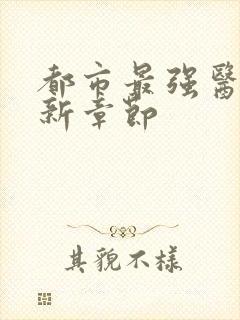 都市最强醫
新章節
其貌不樣